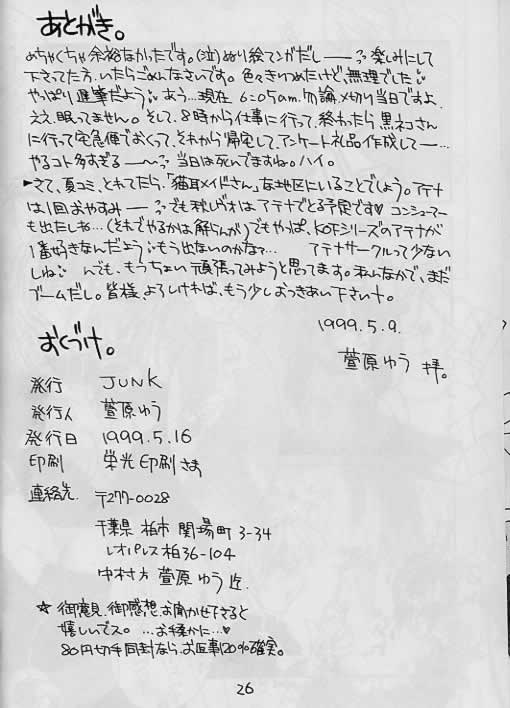 あとがき。
めちゃくちゃ余裕なかったです。(泣)ぬり絵マンガだし——っっ 楽しみにして
下さってた方、いたらごめんなさいです。色々きりつめたけど、無理でした
やっぱり遅筆だよう あう…現在 6:05am. 勿論〆切り当日ですよ
ええ、眠ってません。そして、8時から仕事に行って、終わったら黒ネコさん
に行って宅急便でおくって、それから帰宅して、アンケート礼品作成して—…
やるコト多すぎる——〜っっ 当日は死んでますね。ハイ。
さて、夏コミ、とれてたら、「猫耳メイドさん」な地区にいることでしょう。アテナ
は1回おやすみ——っっでも秋レヴォはアテナでとる予定です♥ コンシューマー
も出たしね…(それでやるかは解らんが)でもやっぱ、KOFシリーズのアテナが
1番好きなんだよう もう出ないのかな?… アテナサークルって少ない
しね んでも、もうちょい頑張ってみようと思ってます。私んなかで、まだ
ブームだし。皆様、よろしければ、もう少しおつきあい下さい
1999.5.9.
萱原ゆう 拝。
おくづけ。
発行 JUNK
発行人 萱原ゆう
発行日 1999.5.16
印刷 栄光印刷さま
連絡先 〒277-0028
千葉県 柏市 関場町 3-34
レオパレス柏36-104
中村方 萱原ゆう 迄.
☆ 御意見、御感想、お聞かせ下さると
嬉しいでス。…お手柔かに…♥
80円切手同封なら、お返事120%確実。
26